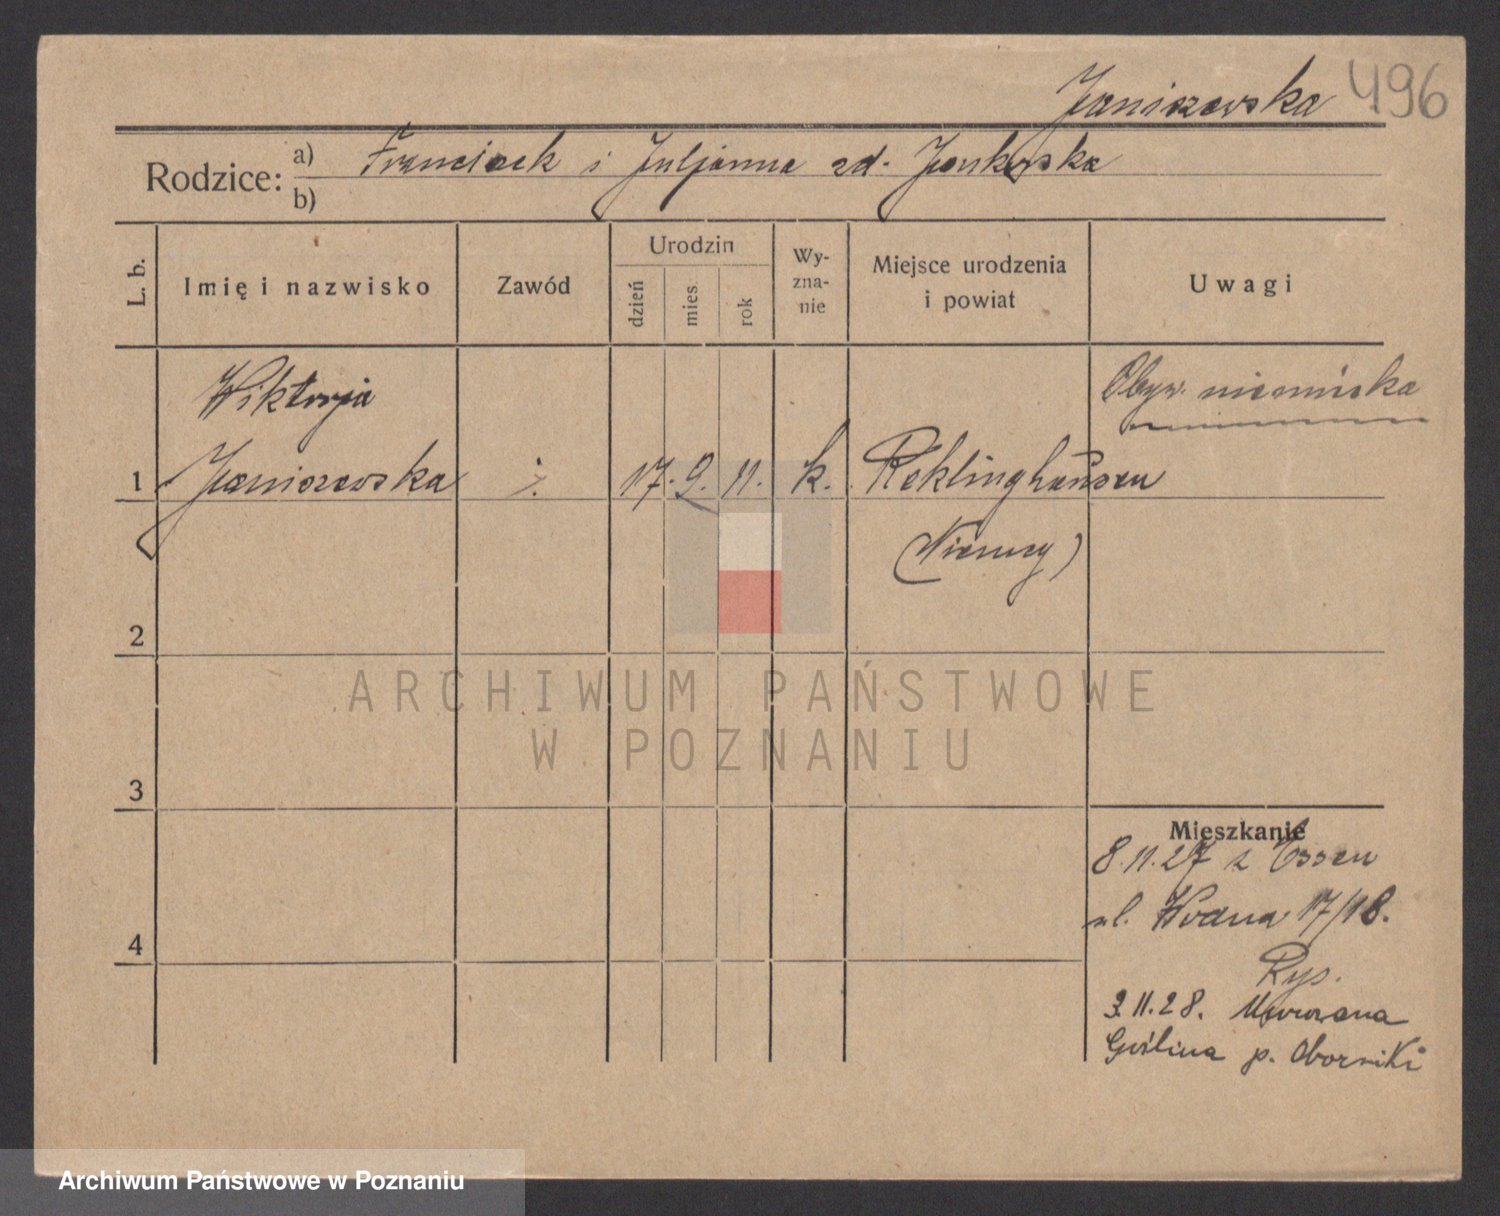 Janiszewska 496
Rodzice: a) Franciszek i Juljanna zd. Jankowska
b)
L. b.
Imię i nazwisko
Zawód
Urodzin
dzień
mies.
rok
Wy-
zna-
nie
Miejsce urodzenia
i powiat
Uwagi
Wiktorja
Obyw. niemiecka
1 Janiszewska ż. 17. 9. 11. k. Reklinghausen
(Niemcy)
2
ARCHIWUM PAŃSTWOWE
W POZNANIU
3
Mieszkanie
8.11.27 z Essen
ul. Wodna 17/18.
4
Rys.
3.11.28. Murowana
Goślina p. Oborniki
Archiwum Państwowe w Poznaniu